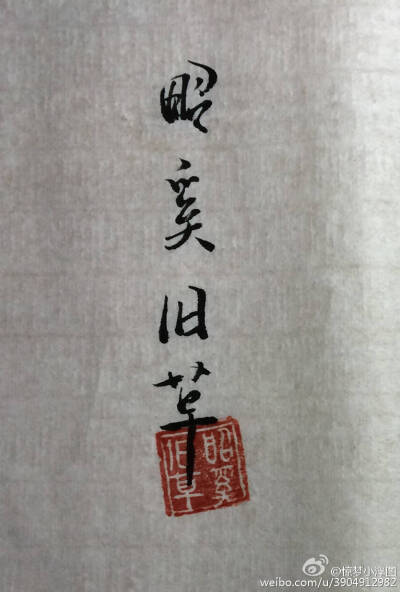 昭奚旧草
昭奚旧草
@惊梦小浮图
weibo.com/u/3904912982